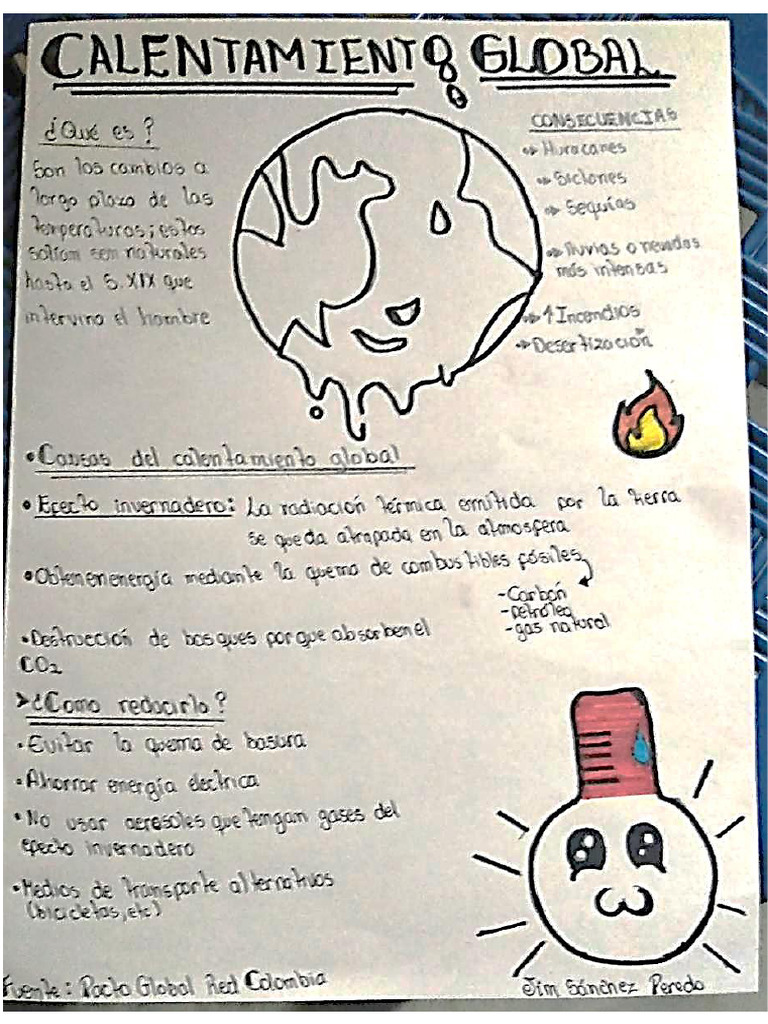 CALENTAMIENTO GLOBAL
¿Qué es?
Son los cambios a
largo plazo de las
temperaturas; estos
solían sem naturales
hasta el S. XIX que
intervino el hombre
CONSECUENCIAS
Huracanes
Siclones
Sequías
lluvias o nevadas
más intensas
↑ Incendios
Desertización
• Causas del calentamiento global
• Efecto invernadero: La radiación térmica emitida por la tierra
se queda atrapada en la atmosfera
• Obtener energía mediante la quema de combustibles fósiles
- Carbón
- petróleo
- gas natural
• Destrucción de bosques porque absorben el
CO2
➤ ¿Como reducirlo?
• Evitar la quema de basura
• Ahorrar energía electrica
• No usar aerosoles que tengan gases del
efecto invernadero
• Medios de transporte alternativos
(bicicletas, etc)
Fuente: Pacto Global Red Colombia
Jim Sánchez Peredo